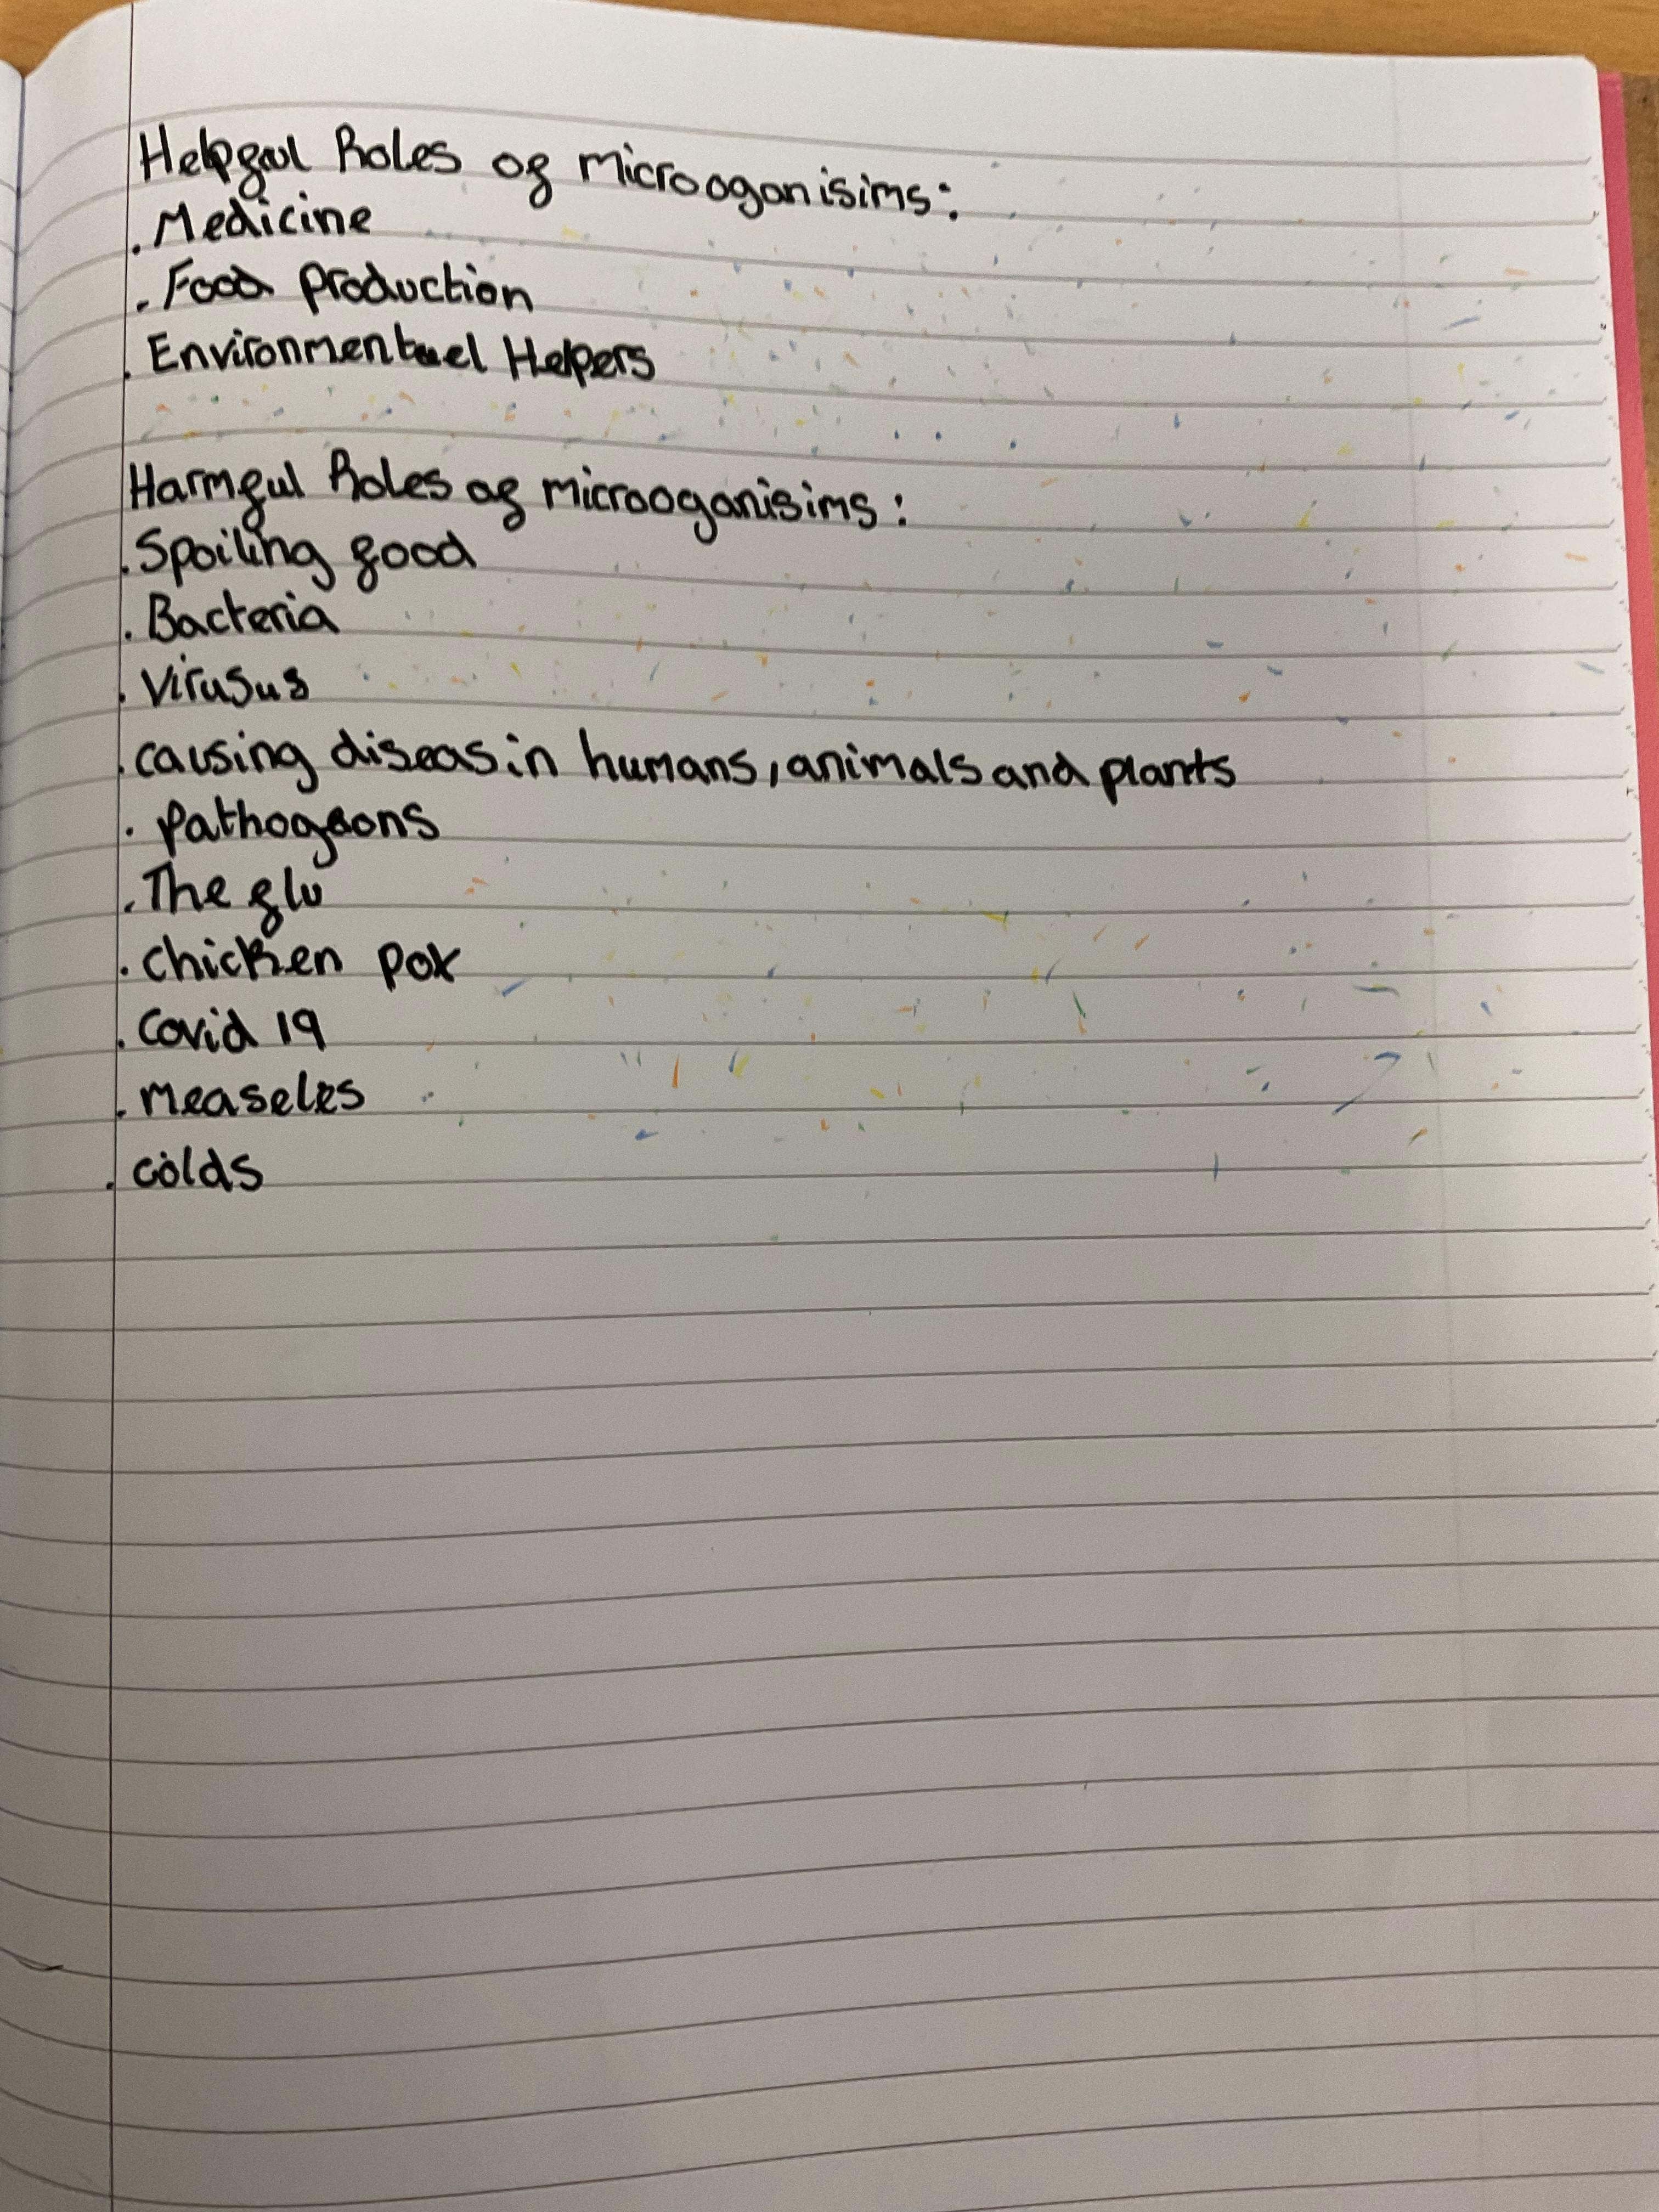 Helpful Roles of Microoganisims:
. Medicine
. Food production
. Environmentael Helpers
Harmful Roles of microoganisims:
. Spoiling food
. Bacteria
. Virusus
. causing diseas in humans, animals and plants
. pathogeons
. The flu
. chicken pox
. Covid 19
. measeles
. colds